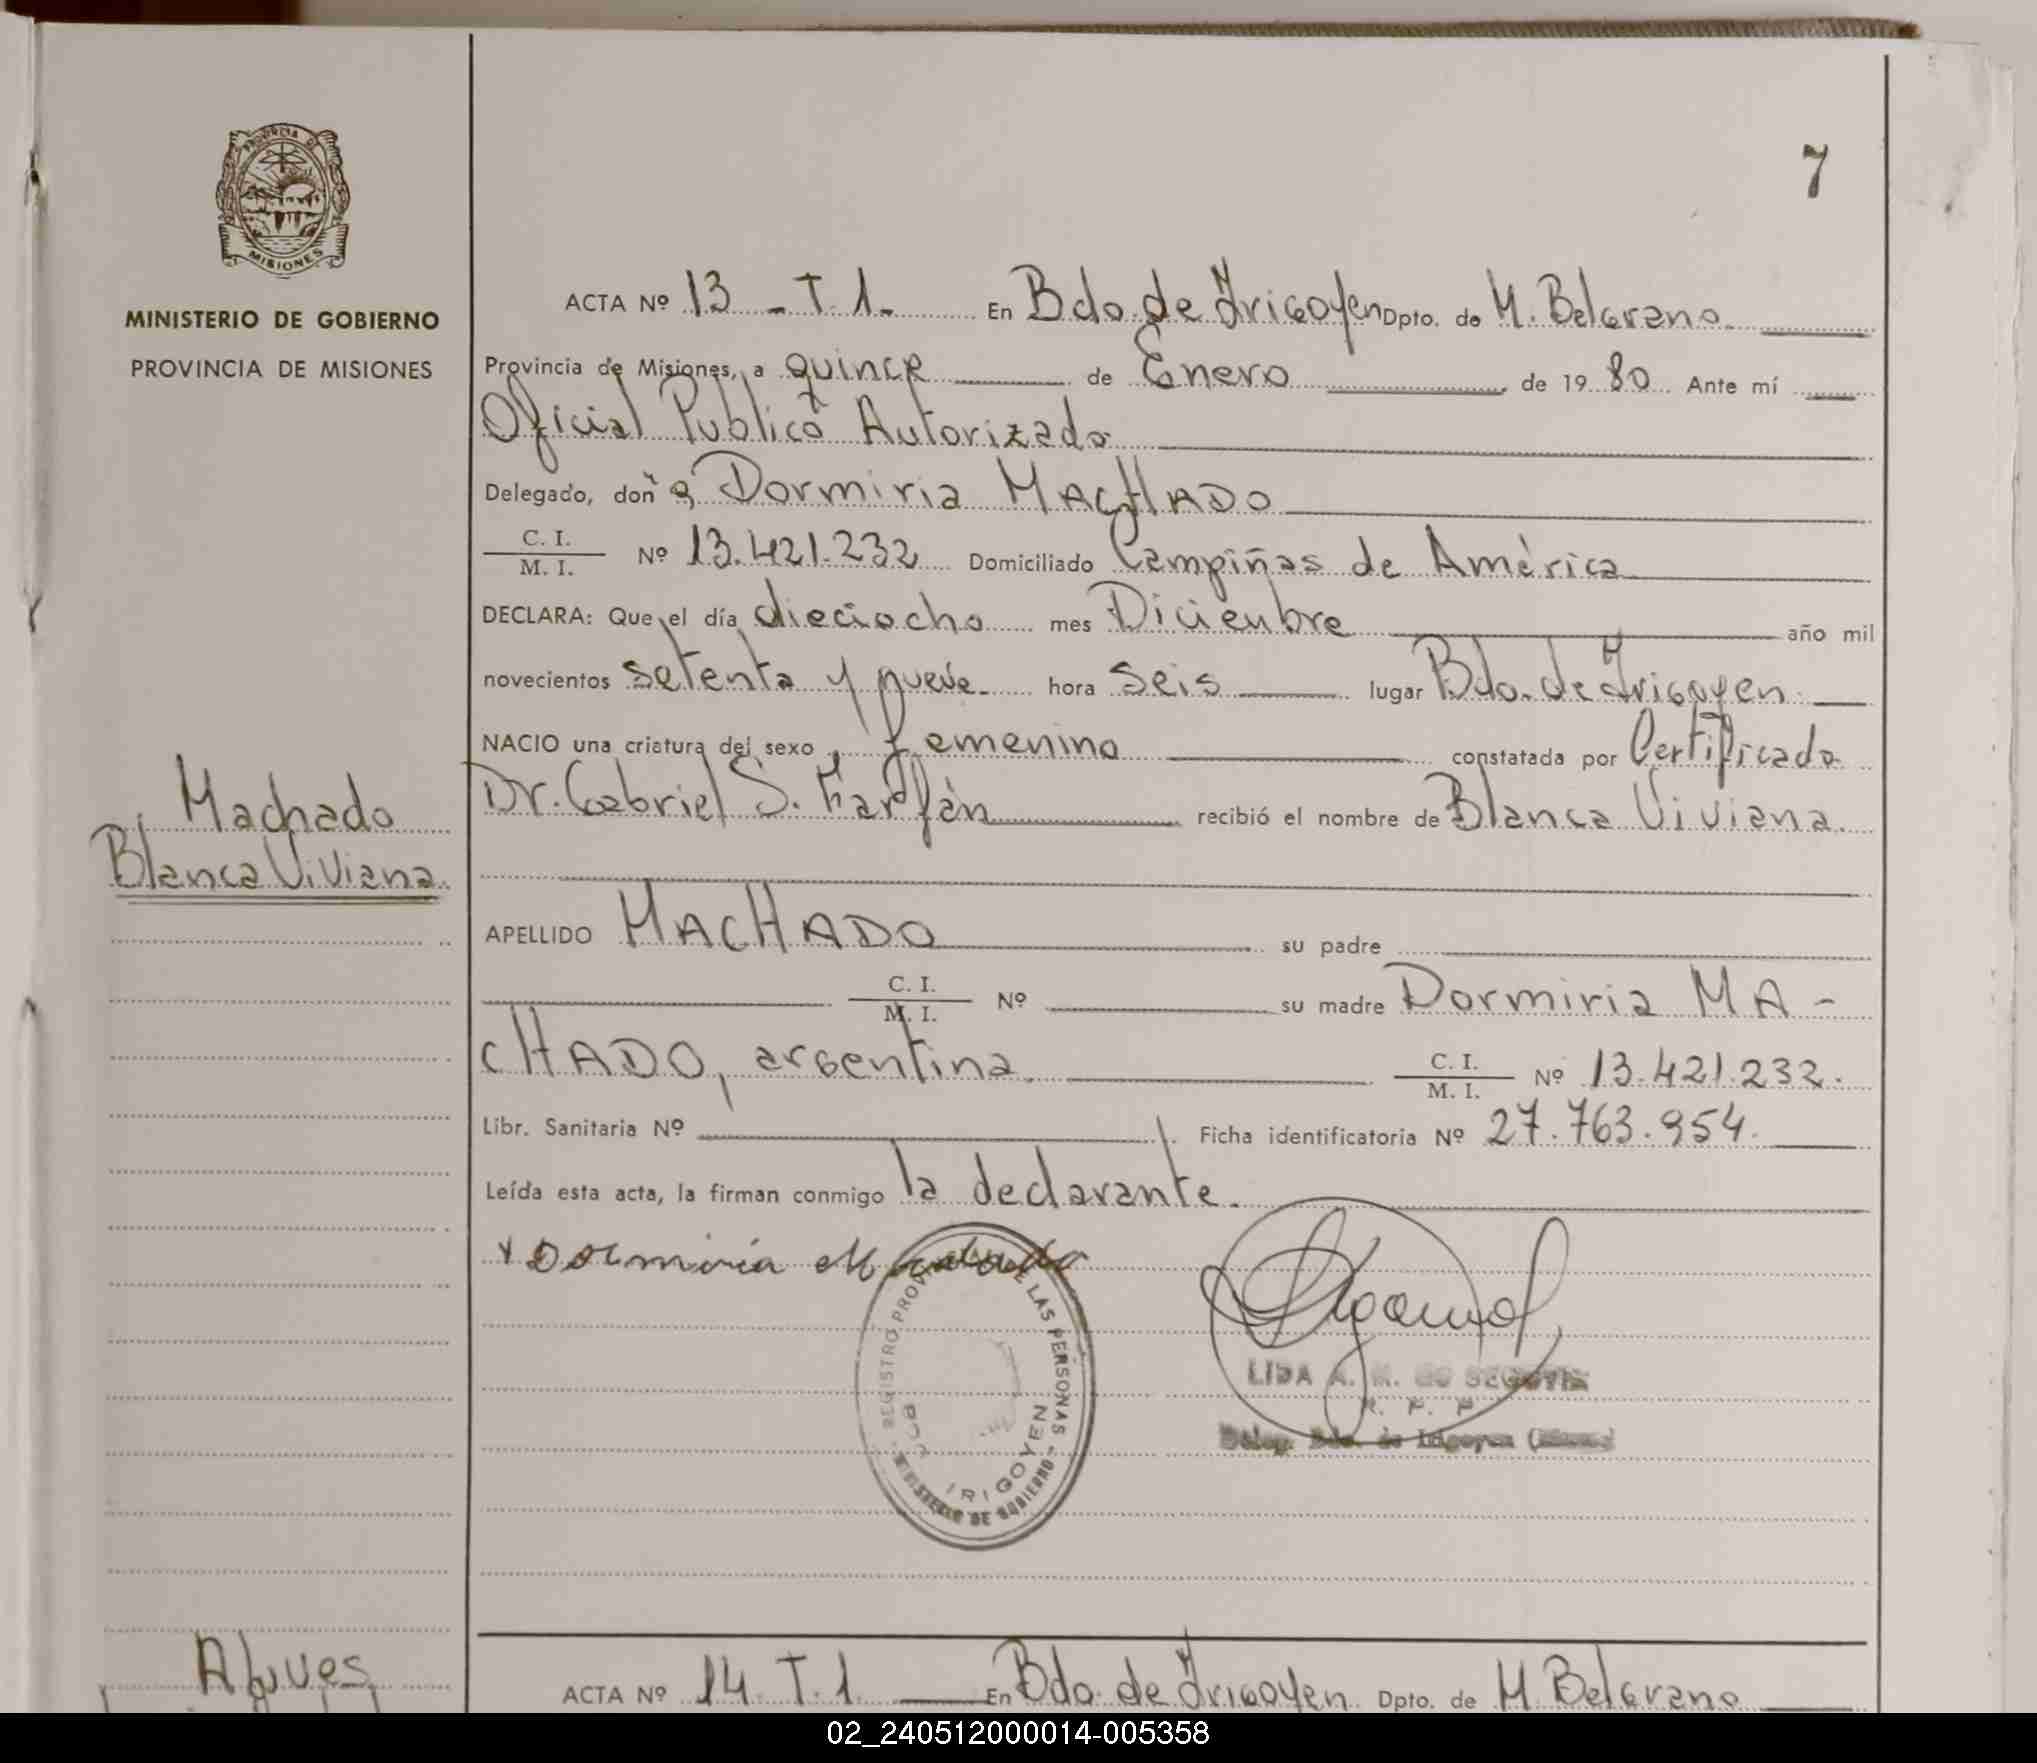 7
PROVINCIA DE
MISIONES
MINISTERIO DE GOBIERNO
PROVINCIA DE MISIONES
ACTA Nº 13 - T. 1. En Bdo. de Irigoyen Dpto. de M. Belgrano
Provincia de Misiones, a quince de Enero de 1980 Ante mí
Oficial Publico Autorizado
Delegado, doña Dormiria MACHADO
C. I.
M. I. Nº 13.421.232 Domiciliado Campiñas de América
DECLARA: Que el día dieciocho mes Diciembre año mil
novecientos setenta y nueve hora seis lugar Bdo. de Irigoyen
NACIO una criatura del sexo femenino constatada por Certificado
Dr. Gabriel S. Farfán recibió el nombre de Blanca Viviana.
Machado
Blanca Viviana.
APELLIDO MACHADO su padre
C. I.
M. I. Nº su madre Dormiria MA-
CHADO, argentina. C. I.
M. I. Nº 13.421.232.
Libr. Sanitaria Nº Ficha identificatoria Nº 27.763.954.
Leída esta acta, la firman conmigo la declarante.
x Dormiria Machado
REGISTRO PROVINCIAL DE LAS PERSONAS
BDO. IRIGOYEN
MINISTERIO DE GOBIERNO
LIDA A. M. de SEGOVIA
R. P. P.
Deleg. Bdo. de Irigoyen (Mnes)
Alves
ACTA Nº 14 T. 1 En Bdo. de Irigoyen Dpto. de M Belgrano
02_240512000014-005358